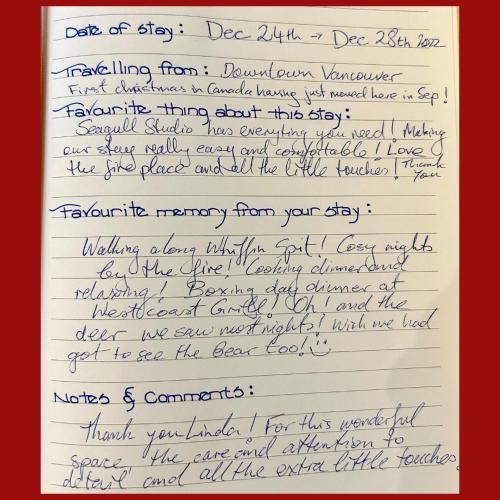 Date of stay: Dec 24th → Dec 28th 2022
Travelling from: Downtown Vancouver
First christmas in Canada having just moved here in Sep!
Favourite thing about this stay:
Seagull Studio has everything you need! Making
our stay really easy and comfortable! Love
the fire place and all the little touches! Thank
you
Favourite memory from your stay:
Walking along Whiffin Spit! Cosy nights
by the fire! Cooking dinner and
relaxing! Boxing day dinner at
West coast Grill! Oh! and the
deer we saw most nights! Wish we had
got to see the Bear too!
Notes & Comments:
Thank you Linda! For this wonderful
space, the care and attention to
detail and all the extra little touches.